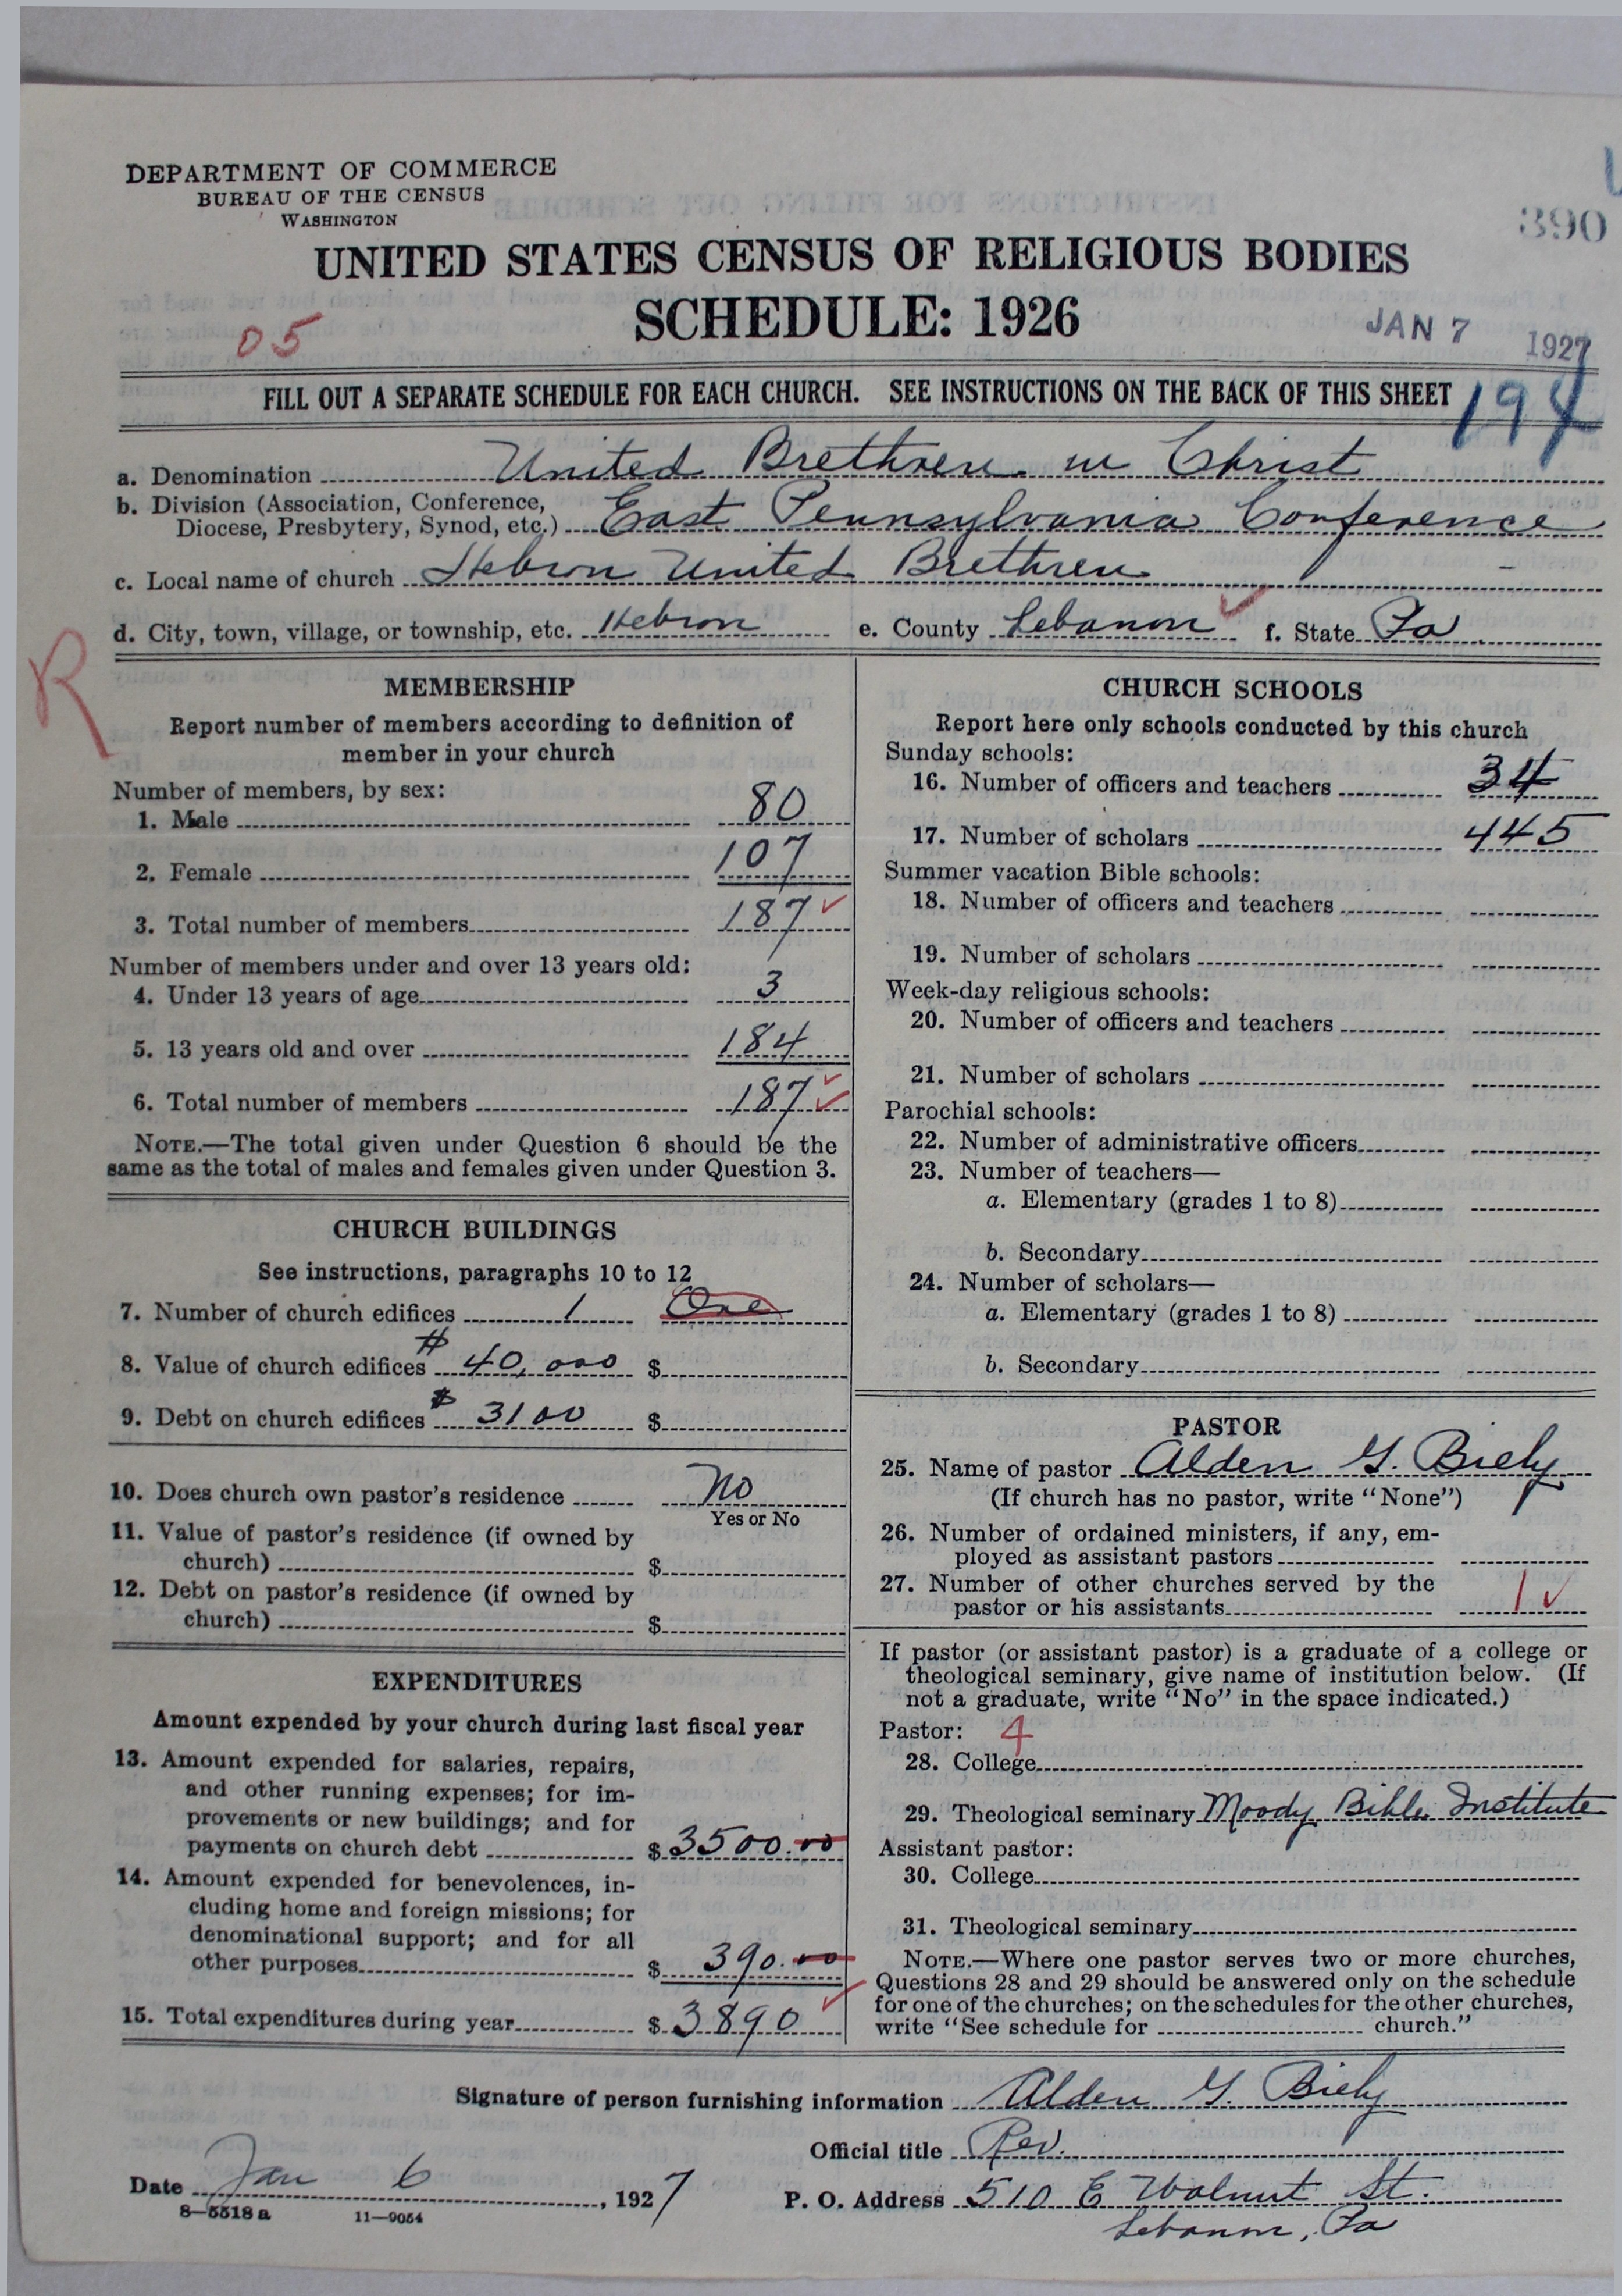 DEPARTMENT OF COMMERCE
BUREAU OF THE CENSUS
WASHINGTON
390
UNITED STATES CENSUS OF RELIGIOUS BODIES
SCHEDULE: 1926
05
JAN 7 1927
FILL OUT A SEPARATE SCHEDULE FOR EACH CHURCH. SEE INSTRUCTIONS ON THE BACK OF THIS SHEET
a. Denomination United Brethren in Christ
b. Division (Association, Conference,
Diocese, Presbytery, Synod, etc.) East Pennsylvania Conference
c. Local name of church Hebron United Brethren
d. City, town, village, or township, etc. Hebron e. County Lebanon f. State Pa
R
MEMBERSHIP
Report number of members according to definition of
member in your church
Number of members, by sex:
1. Male 80
2. Female 107
3. Total number of members 187
Number of members under and over 13 years old:
4. Under 13 years of age 3
5. 13 years old and over 184
6. Total number of members 187
NOTE.—The total given under Question 6 should be the
same as the total of males and females given under Question 3.
CHURCH BUILDINGS
See instructions, paragraphs 10 to 12
7. Number of church edifices 1 One
8. Value of church edifices $ 40,000 $
9. Debt on church edifices $ 3100 $
10. Does church own pastor's residence No
Yes or No
11. Value of pastor's residence (if owned by
church) $
12. Debt on pastor's residence (if owned by
church) $
EXPENDITURES
Amount expended by your church during last fiscal year
13. Amount expended for salaries, repairs,
and other running expenses; for im-
provements or new buildings; and for
payments on church debt $ 3500.00
14. Amount expended for benevolences, in-
cluding home and foreign missions; for
denominational support; and for all
other purposes $ 390.00
15. Total expenditures during year $ 3890
CHURCH SCHOOLS
Report here only schools conducted by this church
Sunday schools:
16. Number of officers and teachers 34
17. Number of scholars 445
Summer vacation Bible schools:
18. Number of officers and teachers
19. Number of scholars
Week-day religious schools:
20. Number of officers and teachers
21. Number of scholars
Parochial schools:
22. Number of administrative officers
23. Number of teachers—
a. Elementary (grades 1 to 8)
b. Secondary
24. Number of scholars—
a. Elementary (grades 1 to 8)
b. Secondary
PASTOR
25. Name of pastor Alden G. Biely
(If church has no pastor, write "None")
26. Number of ordained ministers, if any, em-
ployed as assistant pastors
27. Number of other churches served by the
pastor or his assistants 1
If pastor (or assistant pastor) is a graduate of a college or
theological seminary, give name of institution below. (If
not a graduate, write "No" in the space indicated.)
Pastor: 4
28. College
29. Theological seminary Moody Bible Institute
Assistant pastor:
30. College
31. Theological seminary
NOTE.—Where one pastor serves two or more churches,
Questions 28 and 29 should be answered only on the schedule
for one of the churches; on the schedules for the other churches,
write "See schedule for church."
Signature of person furnishing information Alden G. Biely
Official title Rev.
Date Jan 6, 1927
P. O. Address 510 E Walnut St.
Lebanon, Pa
8—5518 a 11—9054